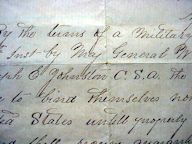 By the terms of a Military
Inst by Maj General W
ph E Johnston C.S.A. the
to bind themselves not
ted States untill properly